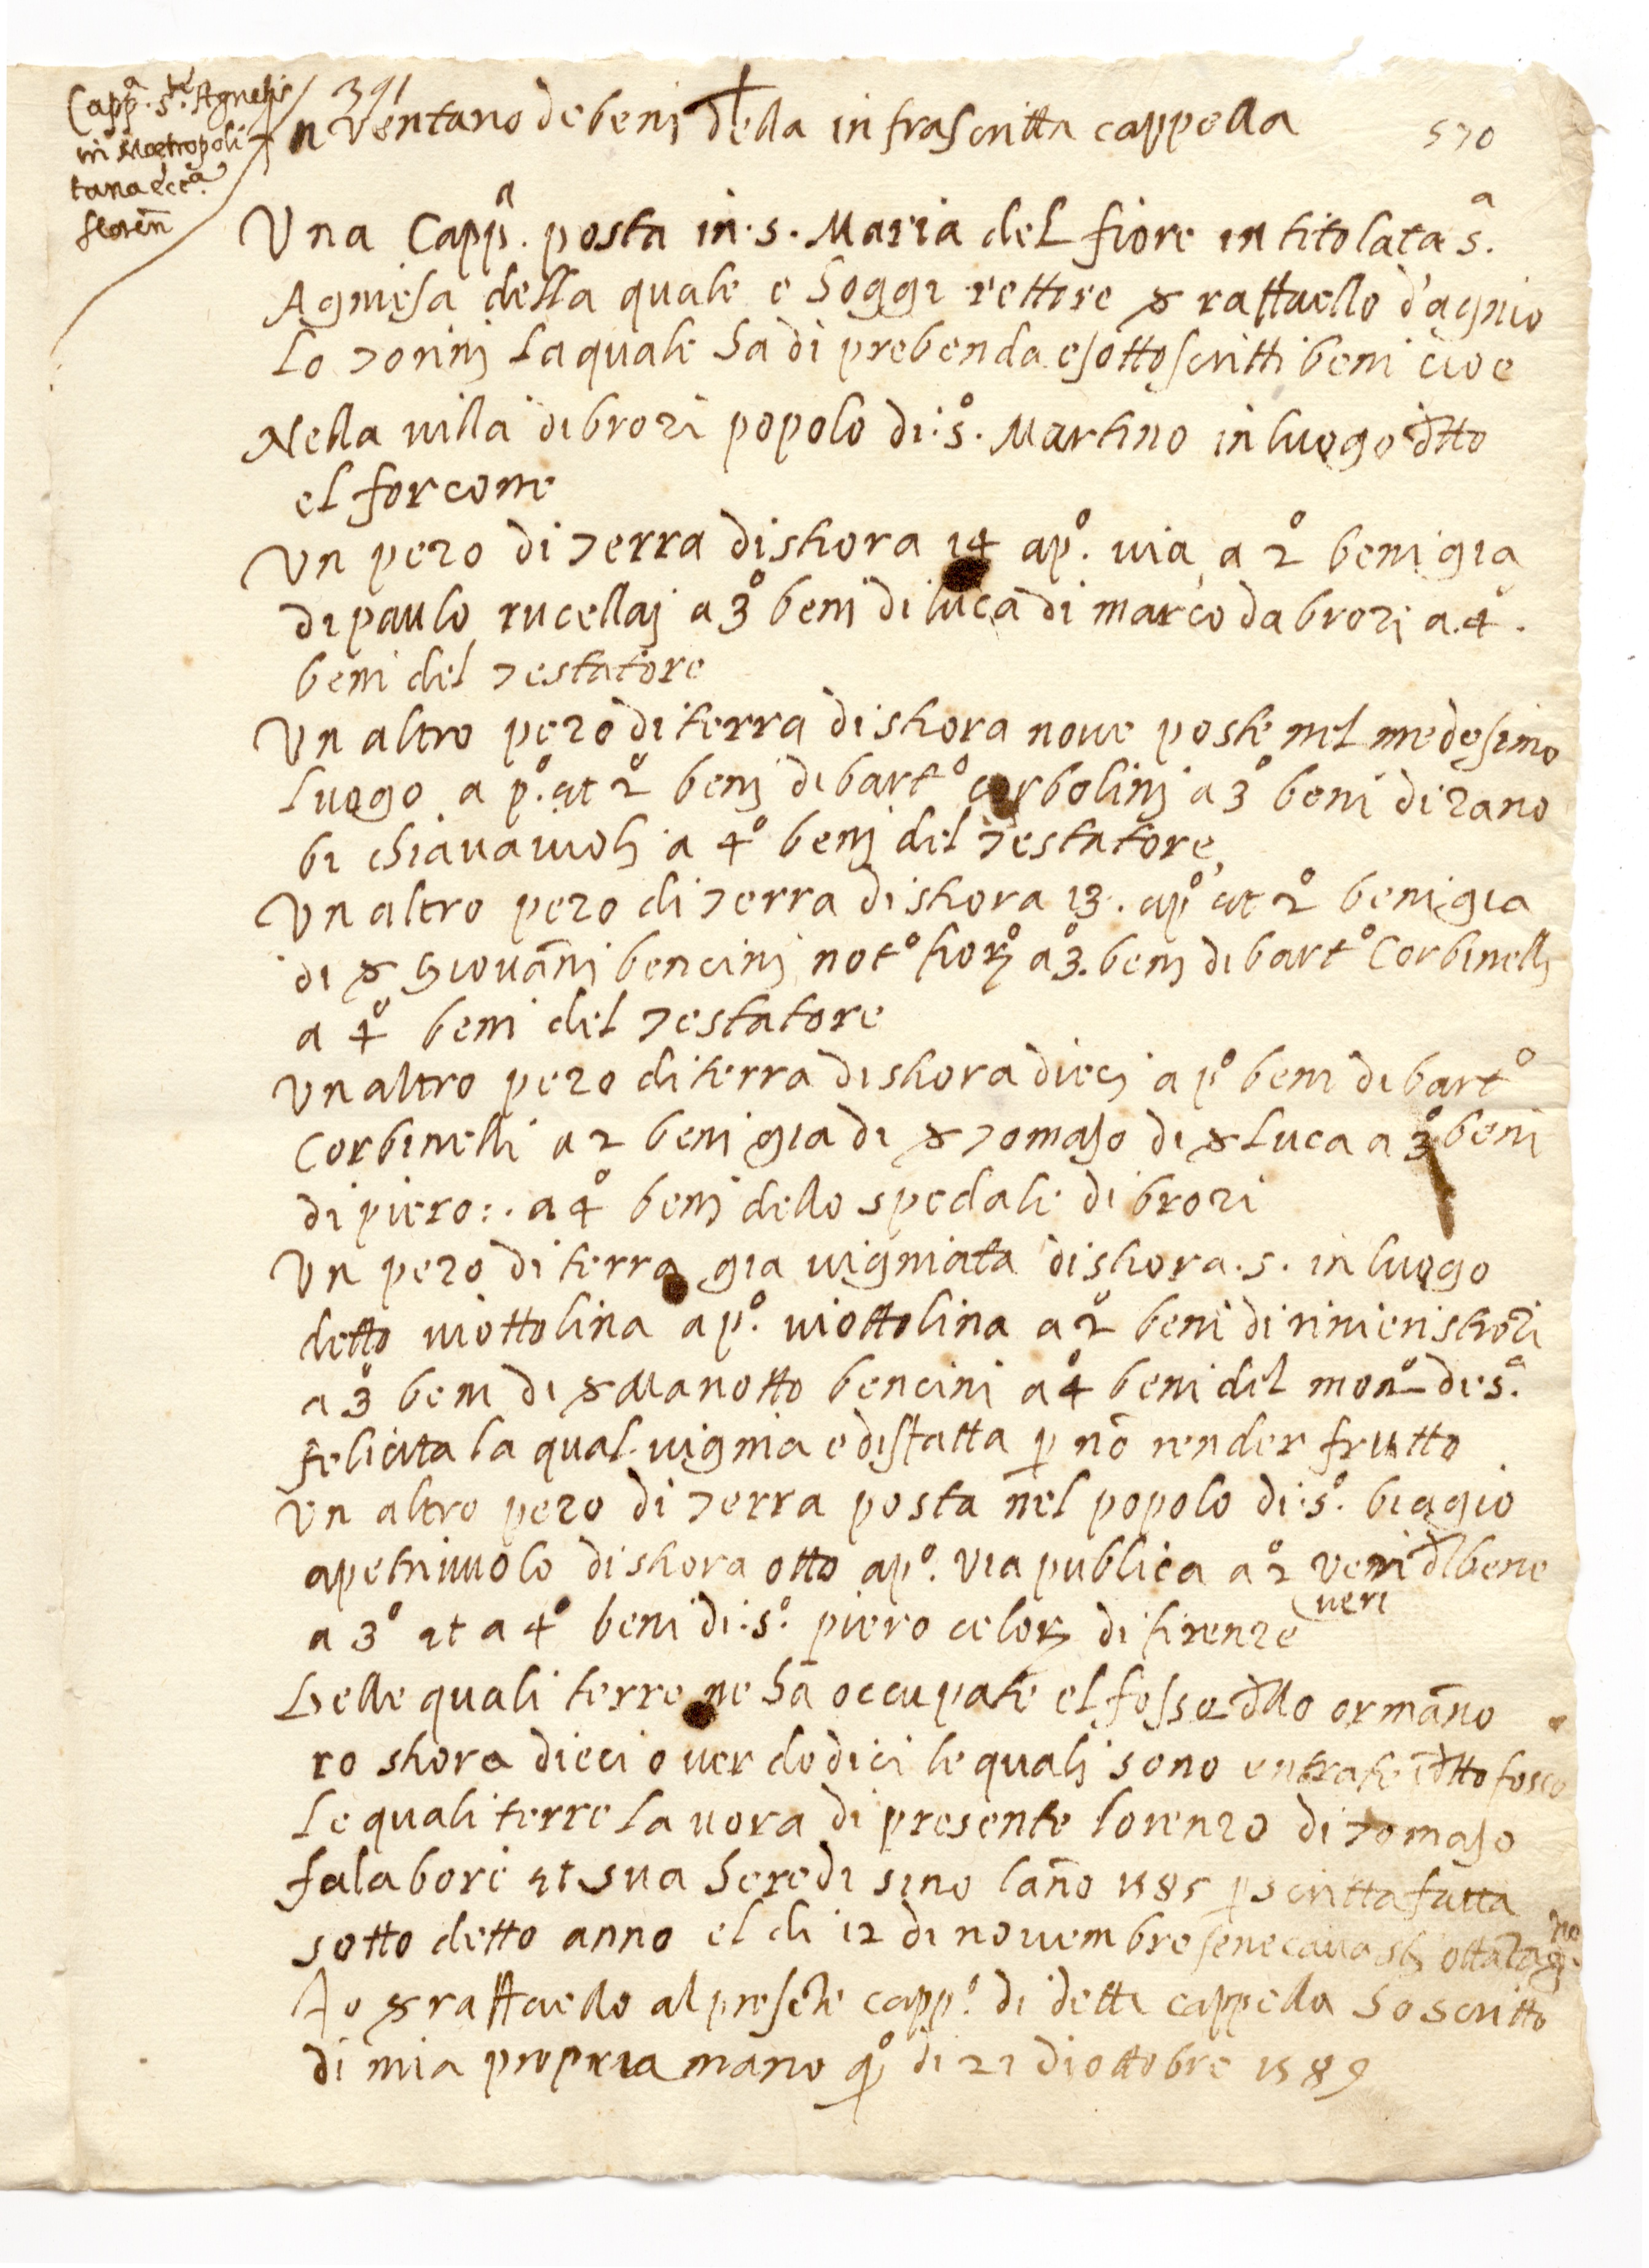 Capp.ᵃ S.ᵗᵉ Agnetis
in Metropoli
tana ecc.ᵃ
floreñ
391
Inventario de beni della infrascritta cappella
570
Una Capp.ᵃ posta in .s. Maria del fiore intitolata s.ᵃ
Agniesa della quale e hoggi rettore ser raffaello d'agnio
lo torini la quale ha di prebenda e sottoscritti beni cioe
Nella villa di brozi popolo di .s.º Martino in luogo dtto
el forcone
Un pezo di terra di stiora 14 a p.º via a 2º beni gia
di paulo rucellaj a 3º beni di luca di marco da brozi a .4º.
beni del testatore
Un altro pezo di terra di stiora nove poste nel medesimo
luogo a p.º et 2º benj di bartº corbolinj a 3º beni di zano
bi chiavaiuoli a 4º benj del testatore
Un altro pezo di terra di stiora 13. a pº et 2º beni gia
di ser Giovanj bencinj notº fiorº a 3.º benj di bartº Corbinellj
a 4º beni del testatore
Un altro pezo di terra di stiora diecj a pº beni di bartº
Corbinelli a 2 beni gia di ser tomaso di ser Luca a 3º beni
di piero :. a 4º benj dello spedale di brozi
Un pezo di terra gia vigniata di stiora .5. in luogo
detto viottolina a p.º viottolina a 2º beni di rinieri strozi
a 3º beni di ser Mariotto bencini a 4º beni del monº di s.ᵃ
felicita la qual vignia e disfatta p no render frutto
Un altro pezo di terra posta nel popolo di .s.º biagio
a petriuolo di stiora otto a p.º via publica a 2º veri dlbene
veri
a 3º et a 4º beni di .s.º piero celorj di firenze
Delle quali terre ne ha occupate el fosso dllo ormano
ro stiora dieci o ver dodici le qualj sono entrate i dtto fosso
Le quali terre lavora di presente lorenzo di tomaso
falabori et sua heredi sino lano 1585 p scritta fatta
sotto detto anno el di 12 di novembre se ne cava
Io ser raffaello al presete capp.º di detta cappella ho scritto
di mia propria mano qº di 21 di ottobre 1589